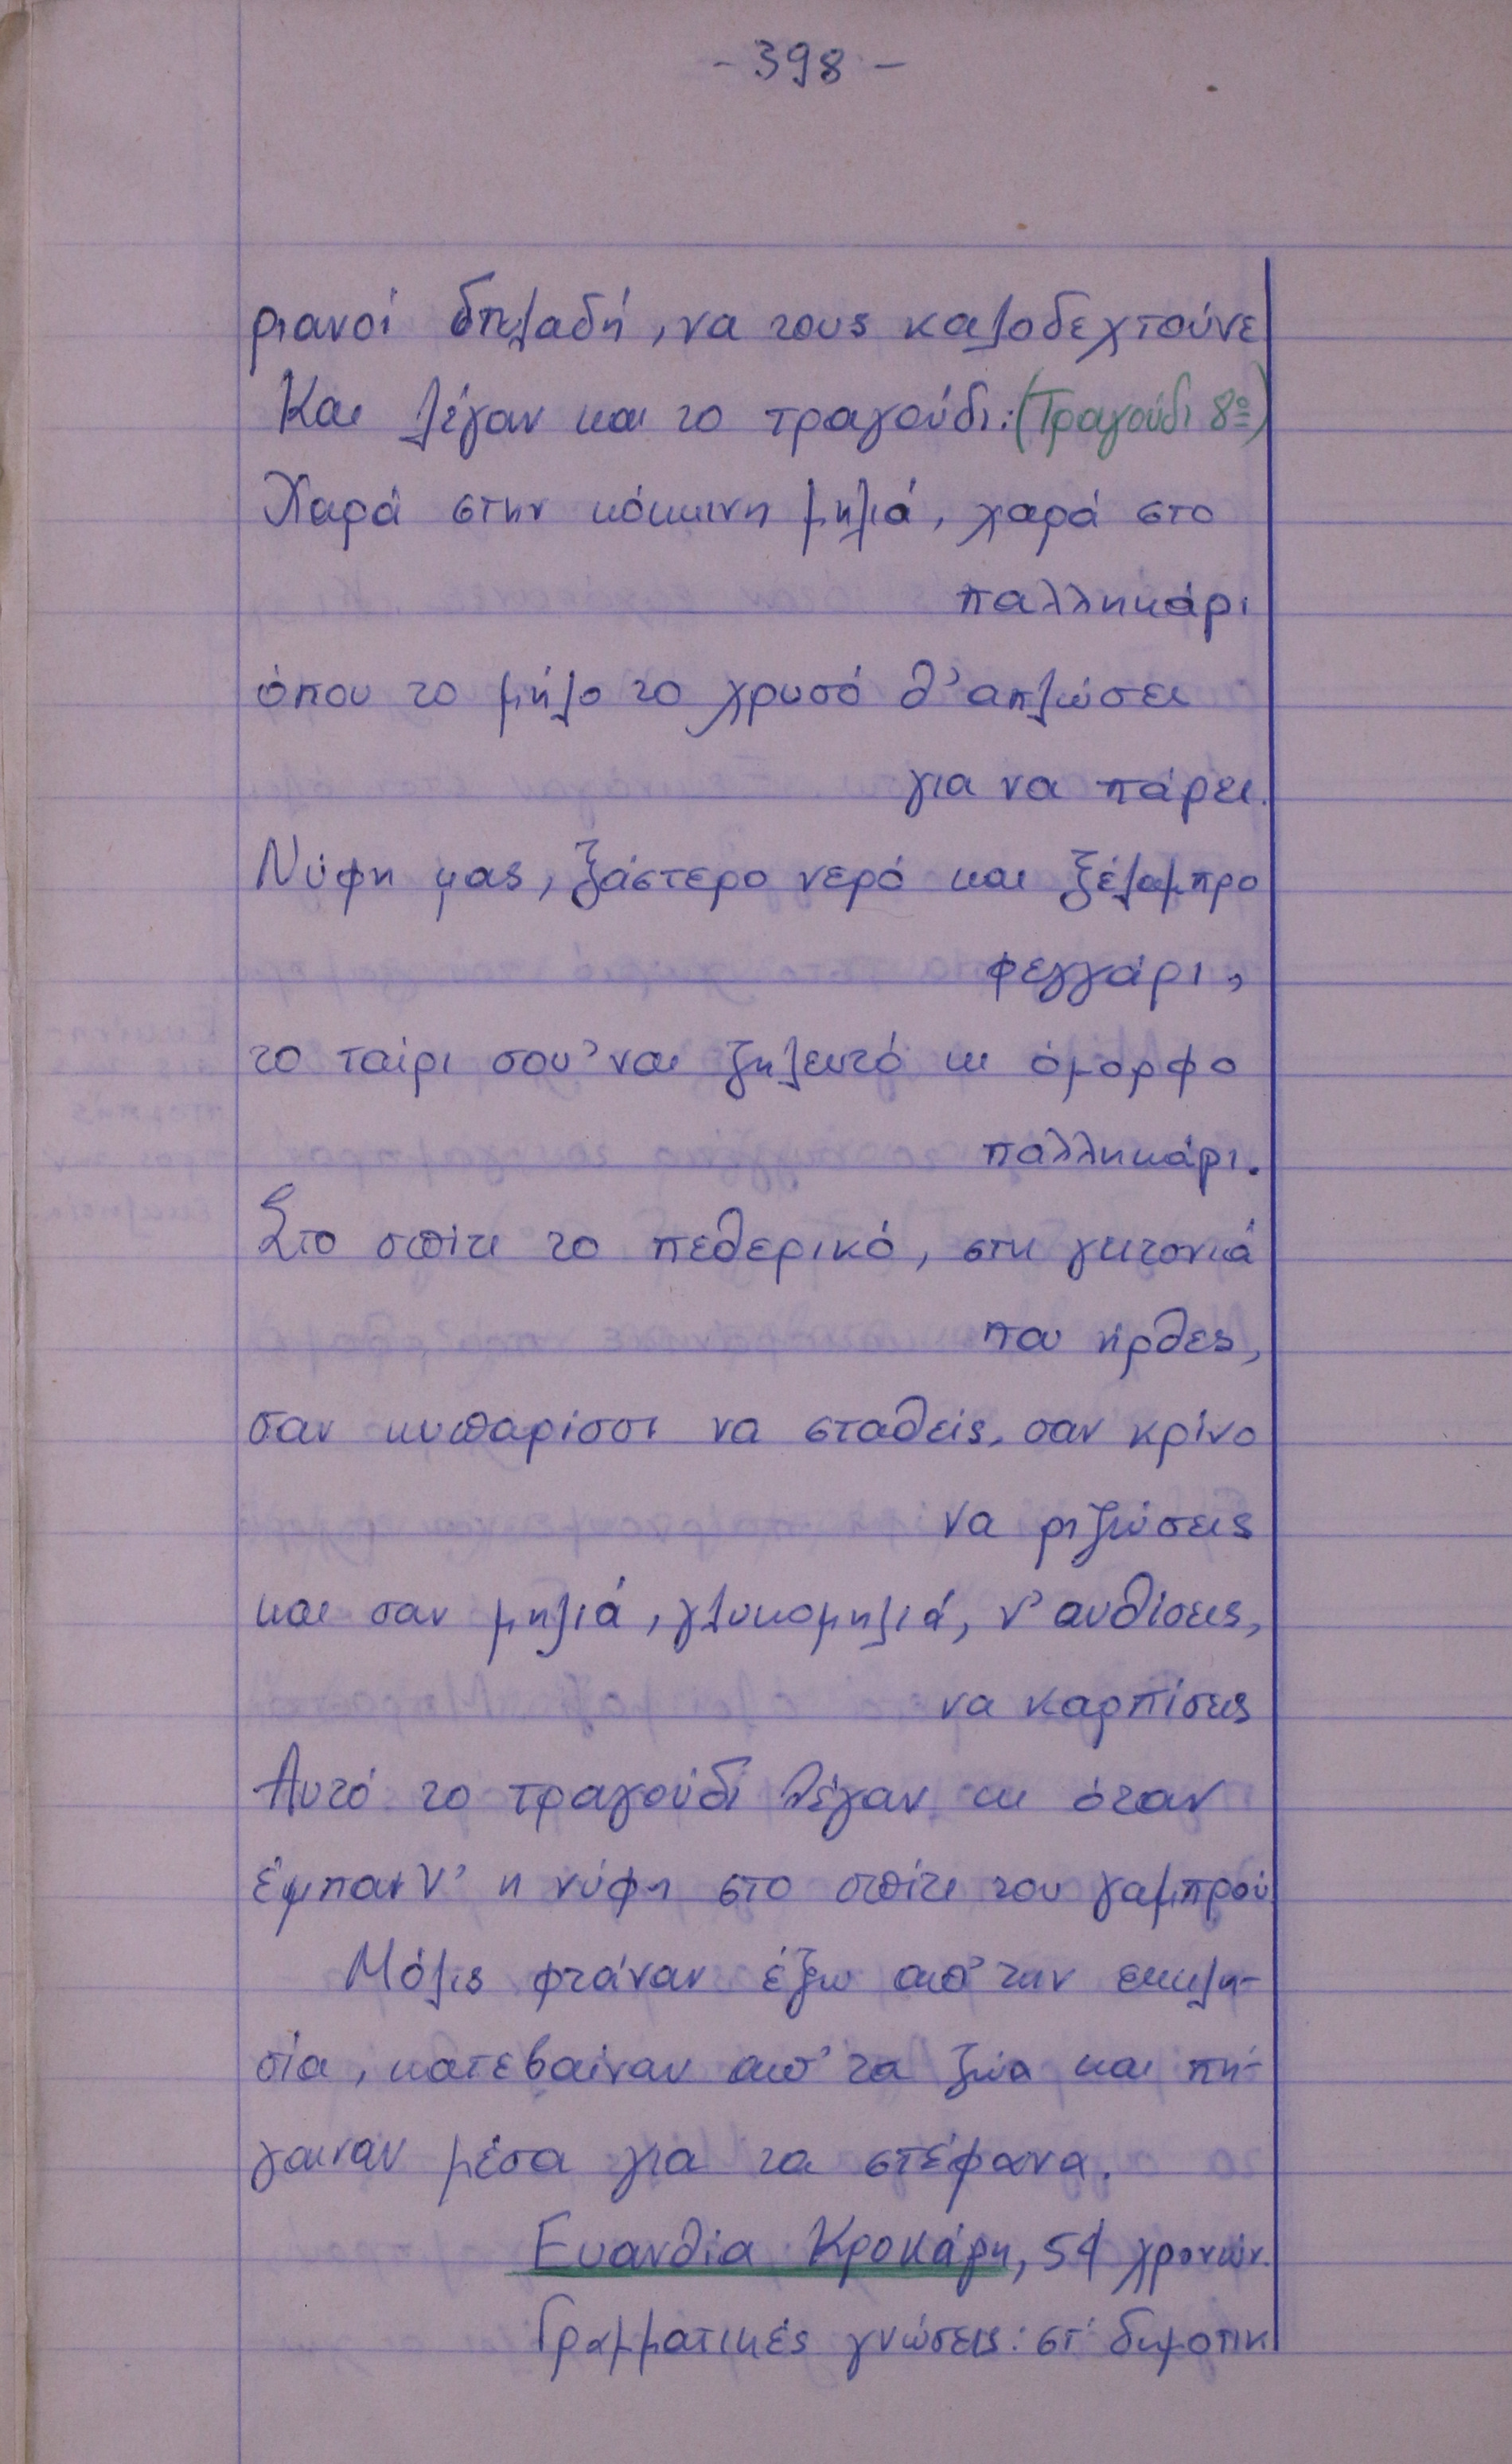 - 398 -
ριανοί δηλαδή, να τους καλοδεχτούνε
Και λέγαν και το τραγούδι: (Τραγούδι 8º)
Χαρά στην κόκκινη μηλιά, χαρά στο
παλληκάρι
όπου το μήλο το χρυσό θ' απλώσει
για να πάρει.
Νύφη μας, ξάστερο νερό και ξέλαμπρο
φεγγάρι,
το ταίρι σου 'ναι ζηλευτό κι όμορφο
παλληκάρι.
Στο σπίτι το πεθερικό, στη γειτονιά
που ήρθες,
σαν κυπαρίσσι να σταθείς, σαν κρίνο
να ριζώσεις
και σαν μηλιά, γλυκομηλιά, ν' ανθίσεις,
να καρπίσεις
Αυτό το τραγούδι λέγαν κι όταν
έμπαιν' η νύφη στο σπίτι του γαμπρού.
Μόλις φτάναν έξω απ' την εκκλη-
σία, κατεβαίναν απ' τα ζώα και πή-
γαιναν μέσα για τα στέφανα.
Ευανθία Κροκάρη, 54 χρονών.
Γραμματικές γνώσεις: στ' δημοτικ